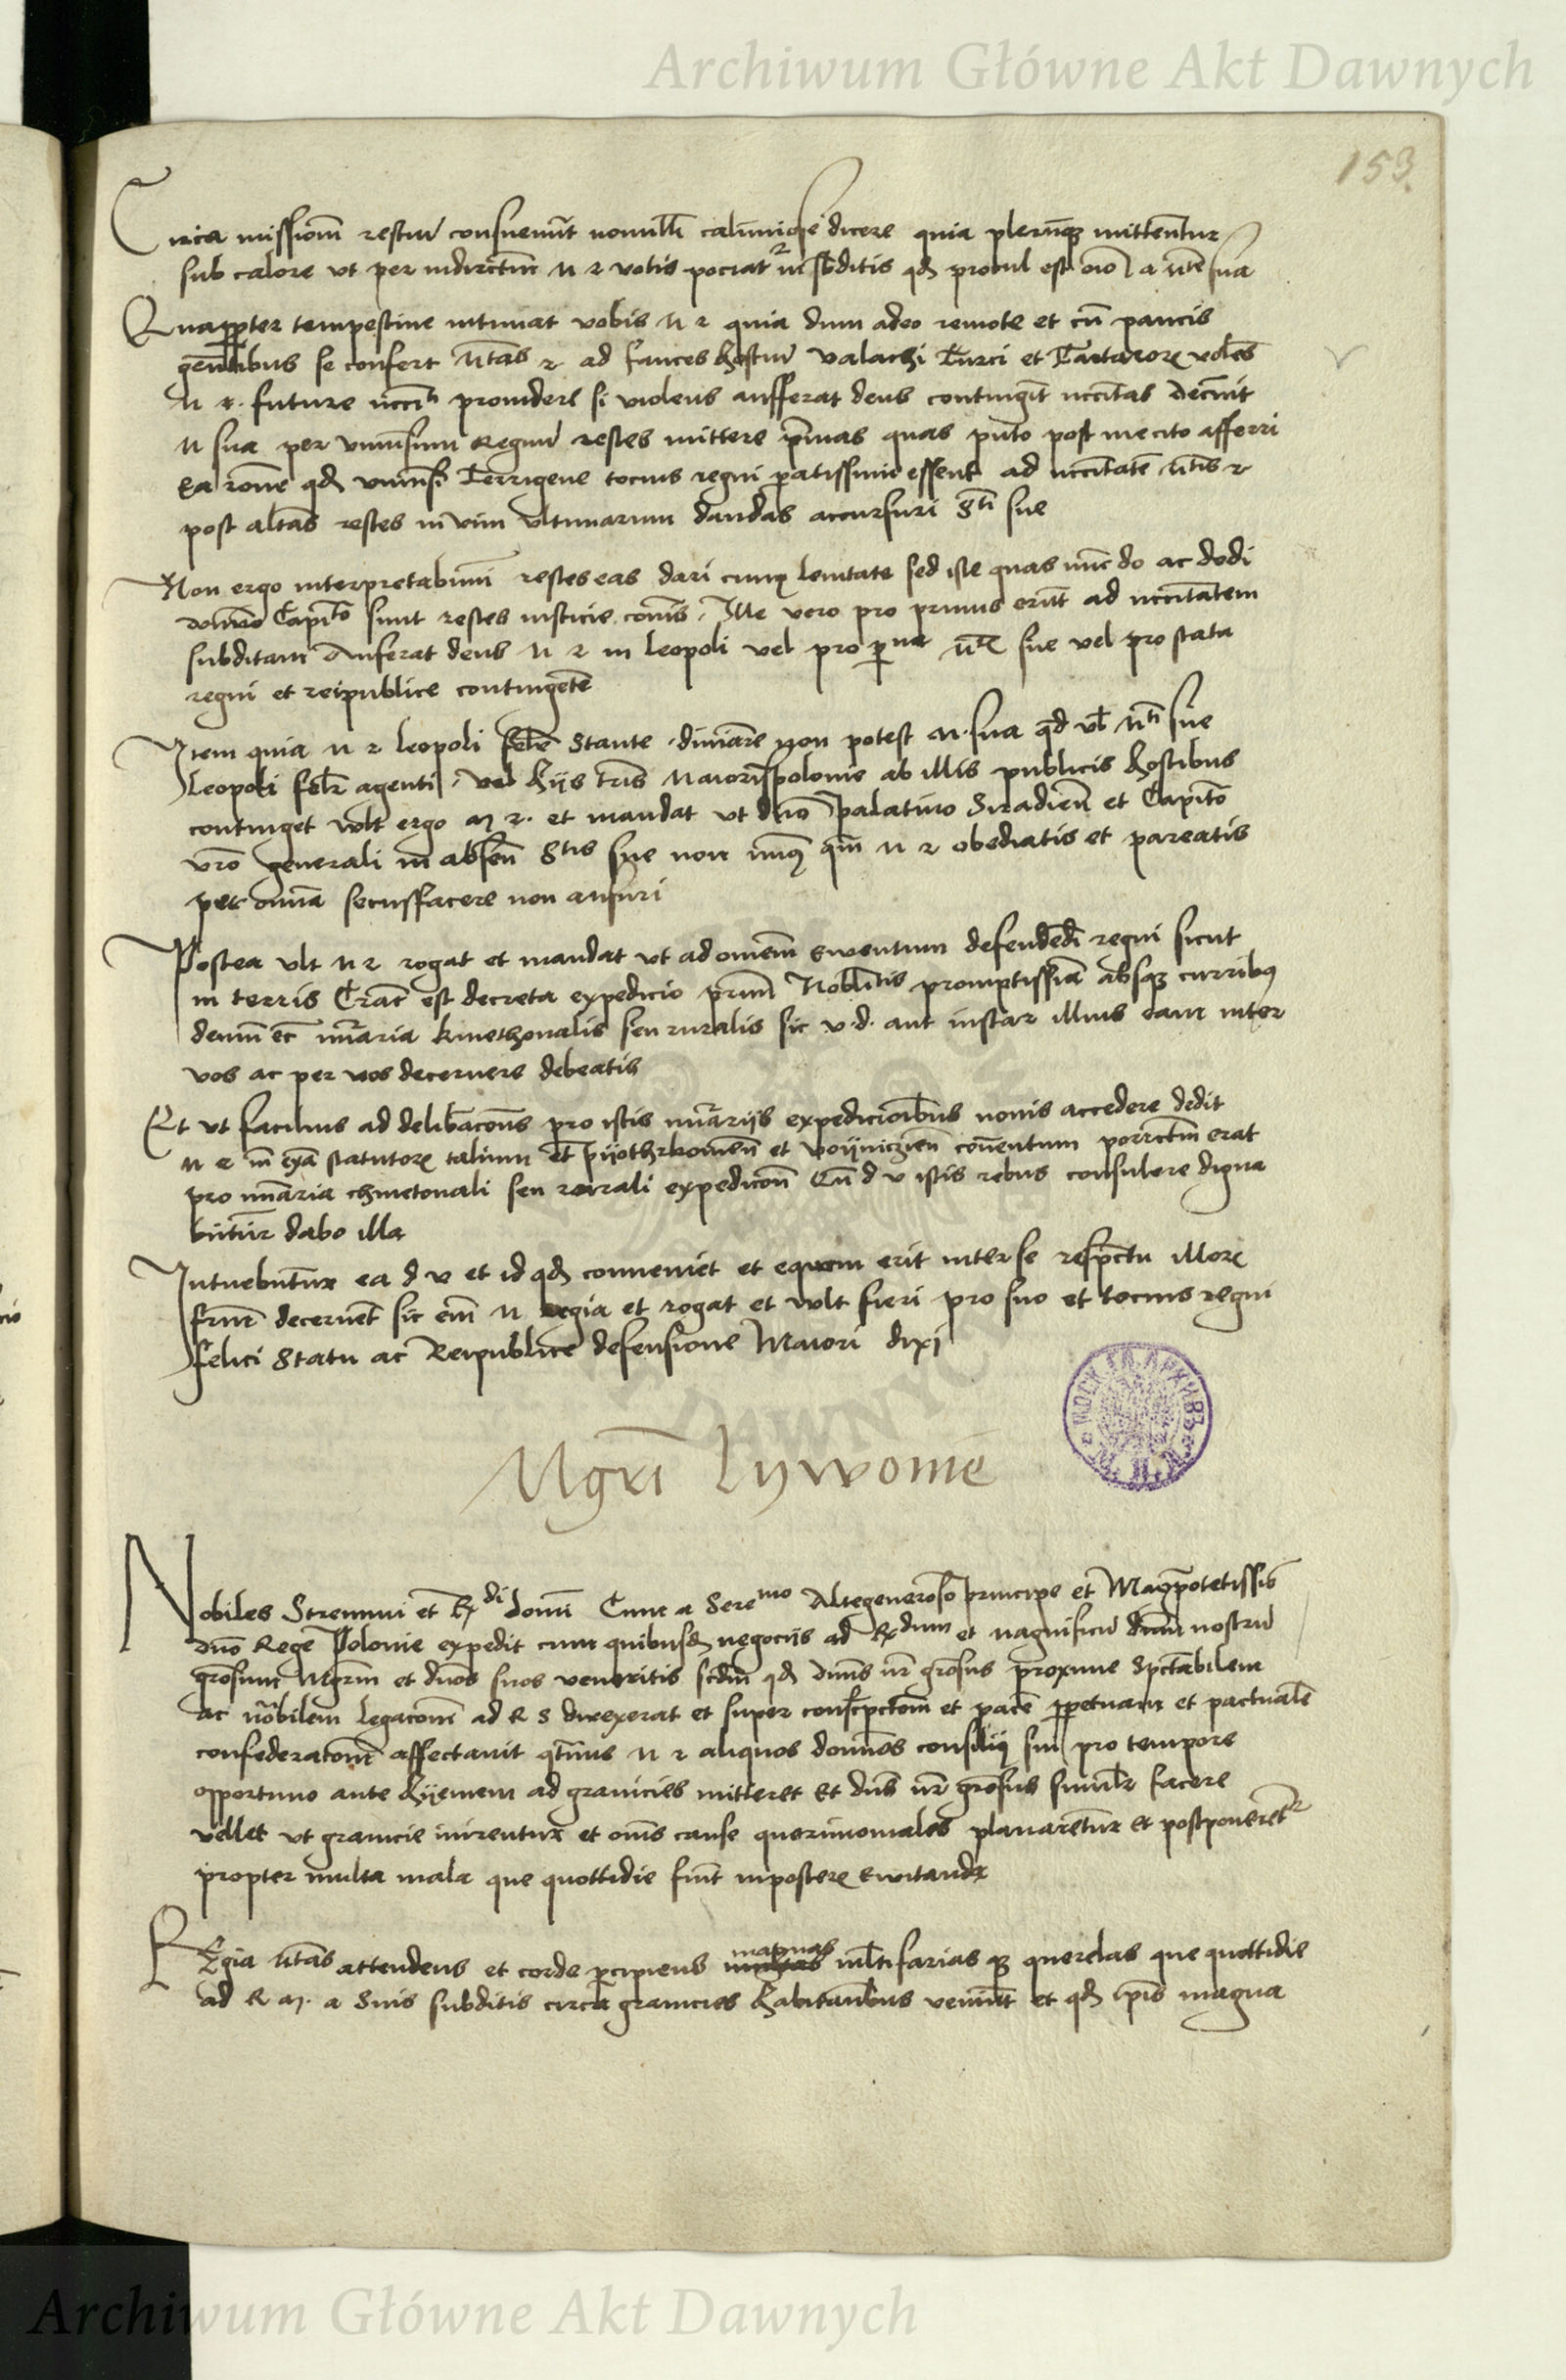 Archiwum Główne Akt Dawnych
153.
Circa missionem restium consueverunt nonnulli caluniose dicere quia plerunque mittentur
sub calore ut per indirectum M R votis pociatur in subditis quod procul est a mente sua
Quapropter tempestive intimat vobis M R quia dum adeo remote et cum paucis
gentibus se confert Mtas R ad fauces hostium Valachi Turci et Tartarorum volens
M R. future necessitati providere si violens aufferat deus contingerit necessitas decrevit
M sua per universum Regnum restes mittere primas quas puto post me cito afferri
Ea racione quod universi Terrigene tocius regni paratissimi essent ad necessitatem Mtis R
post alteras restes in vim ultimarum dandas accursuri Sti sue
Non ergo interpretabimini restes eas dari cum levitate sed iste quas nunc do ac dedi
domino Capitaneo sunt restes iusticie communis. Ille vero pro primis erunt ad necessitatem
subditam Auferat deus M R in leopoli vel pro persona Mtis sue vel pro statu
regni et reipublice contingentem
Item quia M R leopoli feliciter stante divinare non potest M. sua quid vel Mti sue
leopoli feliciter agenti vel hijs terris Maiorispolonie ab illis publicis hostibus
continget vult ergo M R. et mandat ut domino palatino Siradiensi et Capitaneo
vestro generali in absentia Stis sue non minus quam M R obediatis et pareatis
per omnia secusfacere non ausuri
Postea vult M R rogat et mandat ut ad omnem eventum defendendi regni sicut
in terris Crac est decreta expedicio primum Nobilitatis promptissima absque curribus
demum eciam kmethonalis seu ruralis sic v. d. aut instar illius eam inter
vos ac per vos decernere debeatis
Et ut facilius ad deliberaciones pro istis expedicionibus novis accedere dedit
M R statutorum talium et pijothrkowien et woijniczien conventum porrectum erat
pro chmetonali seu rurali expedicione Cum d v istis rebus consulere digna
buntur dabo illa
Intuebuntur ea d v et id quod conveniet et equum erit inter se respectu illorum
decernent sic enim M regia et rogat et vult fieri pro suo et tocius regni
felici Statu ac Reipublice defensione Maiori dixi
Mgri Lywonie
Nobiles Strennui et Rdi domini Cum a Seremo Altegeneroso principe et Magnipotentissimo
domino Rege Polonie expedit cum quibusdam negociis ad Rdum et magnificum dominum nostrum
grosum Mgrm et dominos suos veneritis secundum quod dominus noster grosus proxime Spectabilem
ac notabilem legacionem ad R S direxerat et super conscripcionem et pacem perpetuam et pactualem
confederacionem affectavit quatinus M R aliquos dominos consilij sui pro tempore
opportuno ante hijemem ad granicies mitteret et dominus noster grosus similiter facere
vellet ut granicie inirentur et omnes cause querimoniales planarentur et postponerentur
propter multa mala que quottidie fiunt inposterum evitanda
Regia Mtas attendens et corde percipiens magnas multifarias que querelas que quottidie
ad R M. a Suis subditis circa granicies habitantibus veniunt et quod ipsis magna
Archiwum Główne Akt Dawnych